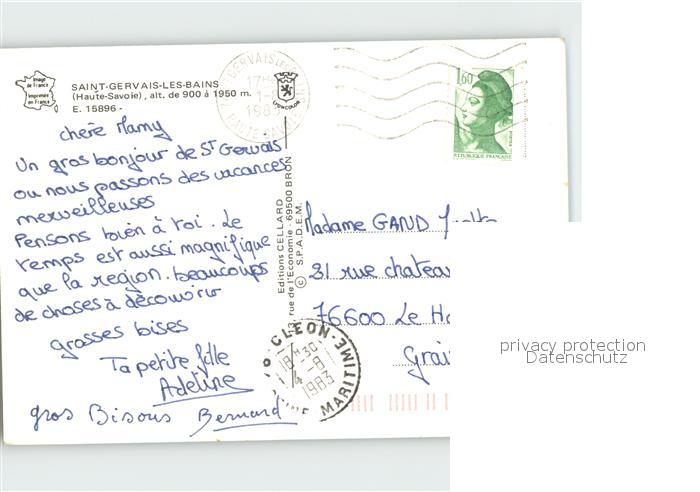 Image
de France
Imprimée
en France
SAINT-GERVAIS-LES-BAINS
(Haute-Savoie), alt. de 900 à 1950 m.
E. 15896 -
chère Mamy
Un gros bonjour de St Gervais
ou nous passons des vacances
merveilleuses
Pensons bien à toi. Le
temps est aussi magnifique
que la région. beaucoups
de choses à découvrir
grosses bises
Ta petite fille
Adeline
gros Bisous Bernard
Editions CELLARD
13, rue de l'Economie - 69500 BRON
© S.P.A.D.E.M.
LYONCOLOR
17H
1983
1,60
REPUBLIQUE FRANÇAISE
Madame GAND
31 rue chateau
76600 Le Ha
CLEON
18H30
4-8
1983
MARITIME
privacy protection
Datenschutz